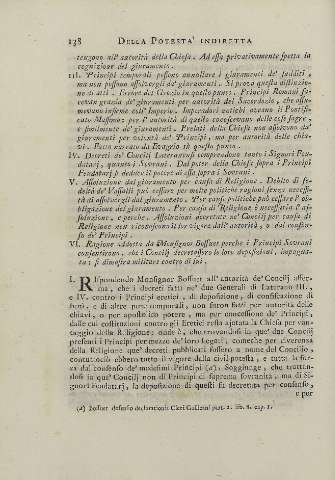 138 DELLA POTESTA' INDIRETTA
tengono all' autorità della Chiesa. Ad essa privativamente spetta la
cognizione del giuramento.
III. Principi temporali possono annullare i giuramenti de' sudditi,
ma non possono assolvergli de' giuramenti. Si prova questa distinzio-
ne di atti. Errore dei Grozio in questo punto. Principi Romani fa-
cevan grazia de' giuramenti per autorità del Sacerdozio, che assu-
mevano insieme coll' Imperio. Imperadori antichi erano i Pontifi-
cato Massimo: per l' autorità di questo conoscevano delle cose sagre,
e similmente de' giuramenti. Prelati della Chiesa non assolvono da'
giuramenti per autorità de' Principi, ma per autorità delle chia-
vi. Fatto narrato da Evagrio in questo punto.
IV. Decreti de' Concilj Lateranensi comprendono tanto i Signori Feu-
datarj, quanto i Sovrani. Dal poter della Chiesa sopra i Principi
Feudatarj si deduce il potere di essa sopra i Sovrani.
V. Assoluzione del giuramento per causa di Religione. Debito di fe-
deltà de' Vassalli può cessare per molte politiche ragioni senza necessi-
tà di assolvergli dal giuramento. Per causa politica può cessare l' ob-
bligazione del giuramento. Per causa di Religione è necessaria l' as-
soluzione, e perchè. Assoluzioni decretate ne' Concilj per causa di
Religione non riconoscono il lor vigore dall' autorità, o dal consen-
so de' Principi.
VI. Ragione addotta da Monsignor Bossuet perchè i Principi Sovrani
consentirono, che i Concilj decretassero le loro deposizioni, impugna-
ta: si dimostra militare contro di lui.
I. Rispondendo Monsignor Bossuet all' autorità de' Concilj affer-
ma, che i decreti fatti ne' due Generali di Laterano III.,
e IV. contro i Principi eretici, di deposizione, di confiscazione di
beni, e di altre pene temporali, non furon fatti per autorità delle
chiavi, o per apostolico potere, ma per concessione de' Principi,
dalle cui costituzioni contro gli Eretici resta ajutata la Chiesa per van-
taggio della Religione: onde è, che trovandosi in que' due Concilj
presenti i Principi per mezzo de' loro Legati, comechè per riverenza
della Religione que' decreti pubblicati fossero a nome del Concilio,
contuttociò ebbero tutto il vigore della civil potestà, e tutta la for-
za dal consenso de' medesimi Principi (a). Soggiunge, che trattan-
dosi in que' Concilj non di Principi di suprema sovranità, ma di Si-
gnori Feudatarj, la deposizione di questi fu decretata per consenso,
e per
(a) Bossuet defensio declarationis Cleri Gallicani part. 2. lib. 8. cap. 1.